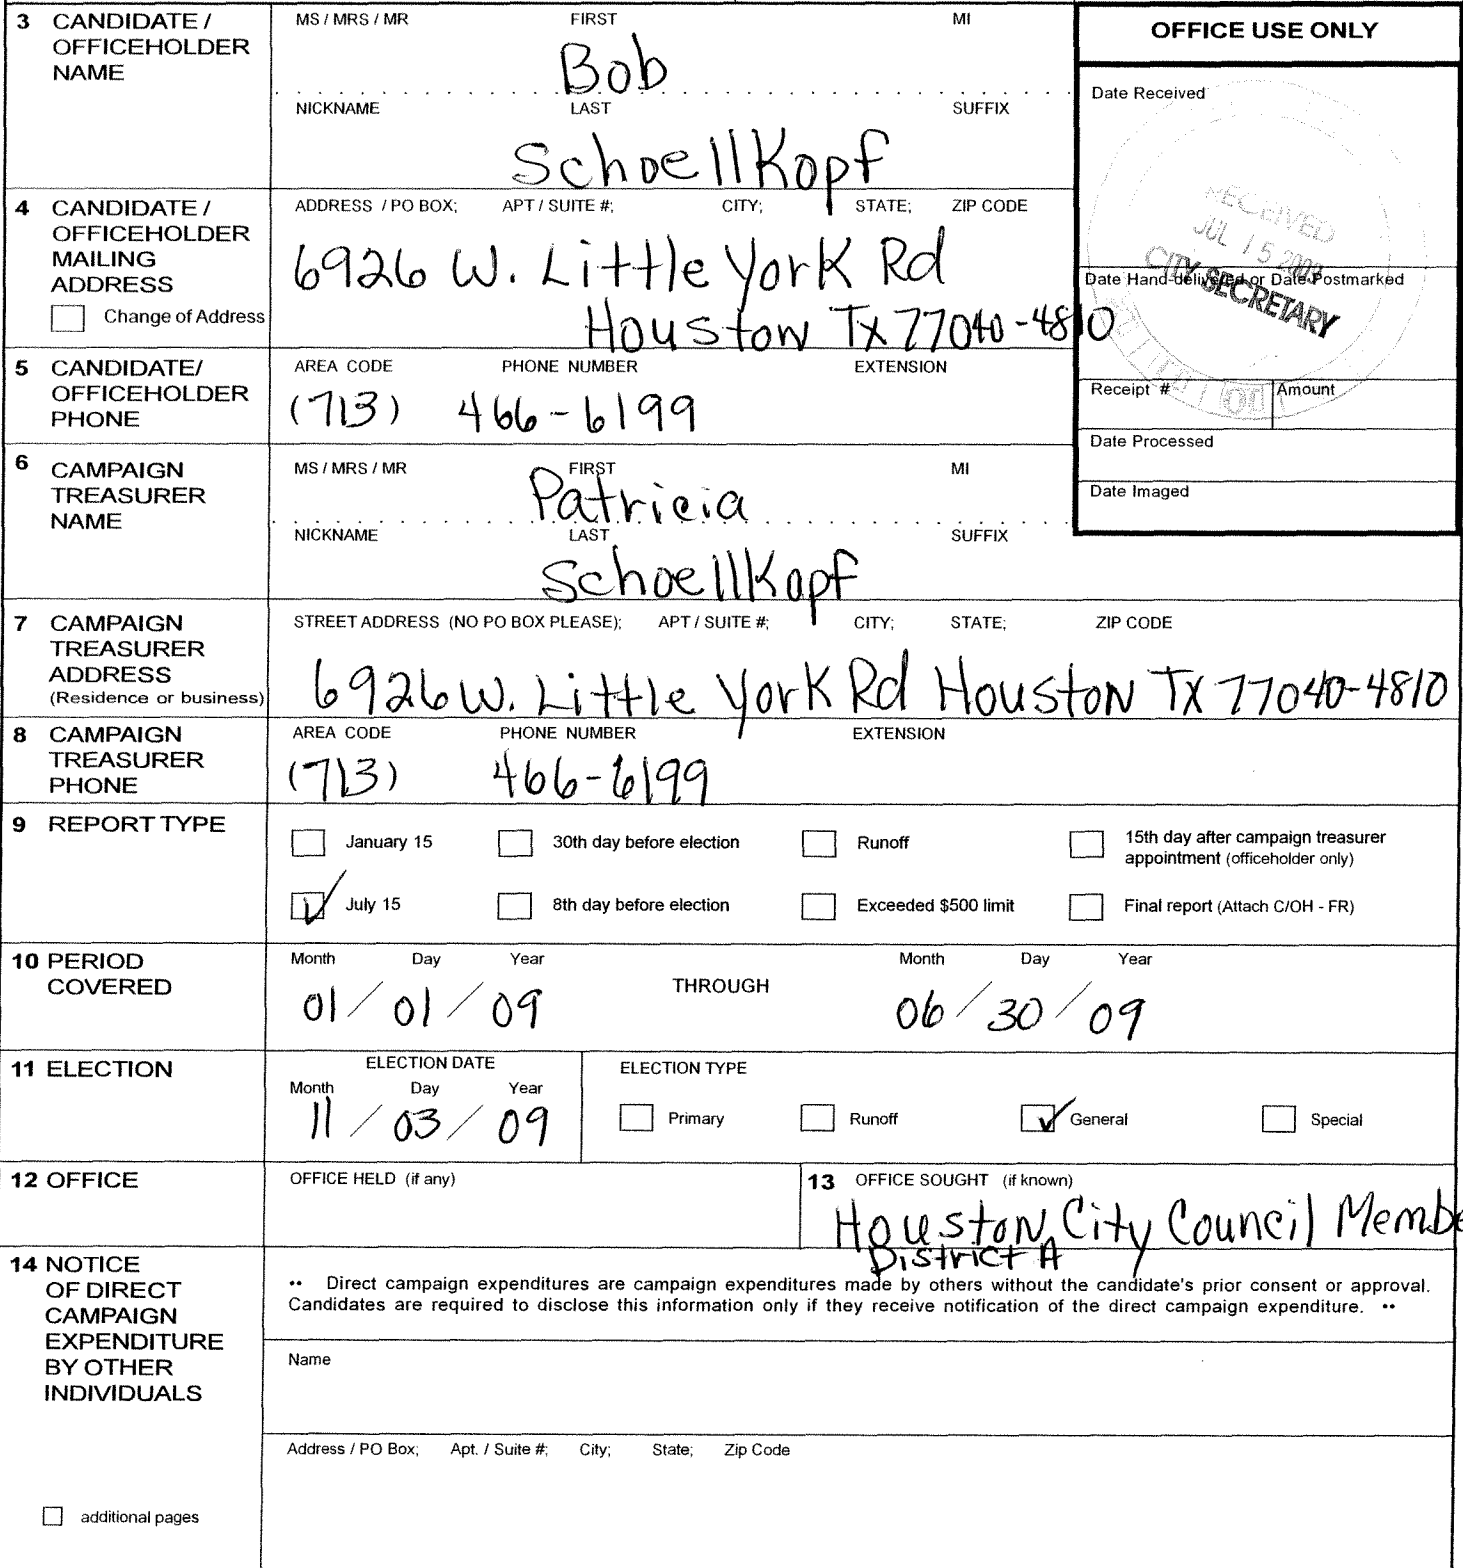 3 CANDIDATE / OFFICEHOLDER NAME
MS / MRS / MR FIRST MI
Bob
NICKNAME LAST SUFFIX
SchoellKopf
OFFICE USE ONLY
Date Received
RECEIVED
JUL 15 2009
CITY SECRETARY
Date Hand-delivered or Date Postmarked
Receipt # Amount
Date Processed
Date Imaged
4 CANDIDATE / OFFICEHOLDER MAILING ADDRESS
Change of Address
ADDRESS / PO BOX; APT / SUITE #; CITY; STATE; ZIP CODE
6926 W. Little York Rd
Houston Tx 77040-4810
5 CANDIDATE/ OFFICEHOLDER PHONE
AREA CODE PHONE NUMBER EXTENSION
(713) 466-6199
6 CAMPAIGN TREASURER NAME
MS / MRS / MR FIRST MI
Patricia
NICKNAME LAST SUFFIX
SchoellKopf
7 CAMPAIGN TREASURER ADDRESS
(Residence or business)
STREET ADDRESS (NO PO BOX PLEASE); APT / SUITE #; CITY; STATE; ZIP CODE
6926 W. Little York Rd Houston Tx 77040-4810
8 CAMPAIGN TREASURER PHONE
AREA CODE PHONE NUMBER EXTENSION
(713) 466-6199
9 REPORT TYPE
January 15 30th day before election Runoff 15th day after campaign treasurer appointment (officeholder only)
July 15 8th day before election Exceeded $500 limit Final report (Attach C/OH - FR)
10 PERIOD COVERED
Month Day Year Month Day Year
01 / 01 / 09 THROUGH 06 / 30 / 09
11 ELECTION
ELECTION DATE
Month Day Year
11 / 03 / 09
ELECTION TYPE
Primary Runoff General Special
12 OFFICE
OFFICE HELD (if any)
13 OFFICE SOUGHT (if known)
Houston City Council Membe
District A
14 NOTICE OF DIRECT CAMPAIGN EXPENDITURE BY OTHER INDIVIDUALS
•• Direct campaign expenditures are campaign expenditures made by others without the candidate's prior consent or approval.
Candidates are required to disclose this information only if they receive notification of the direct campaign expenditure. ••
Name
Address / PO Box; Apt. / Suite #; City; State; Zip Code
additional pages